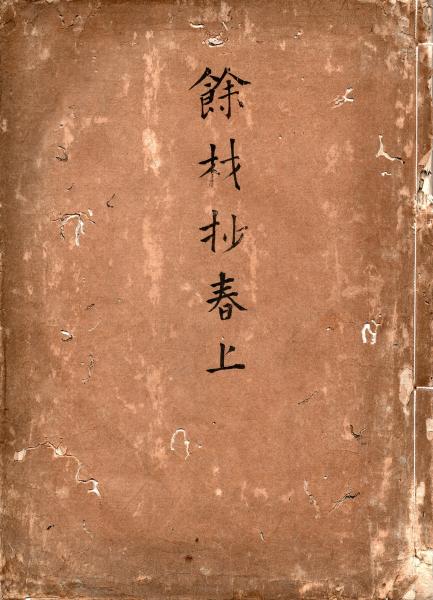 餘材抄春上